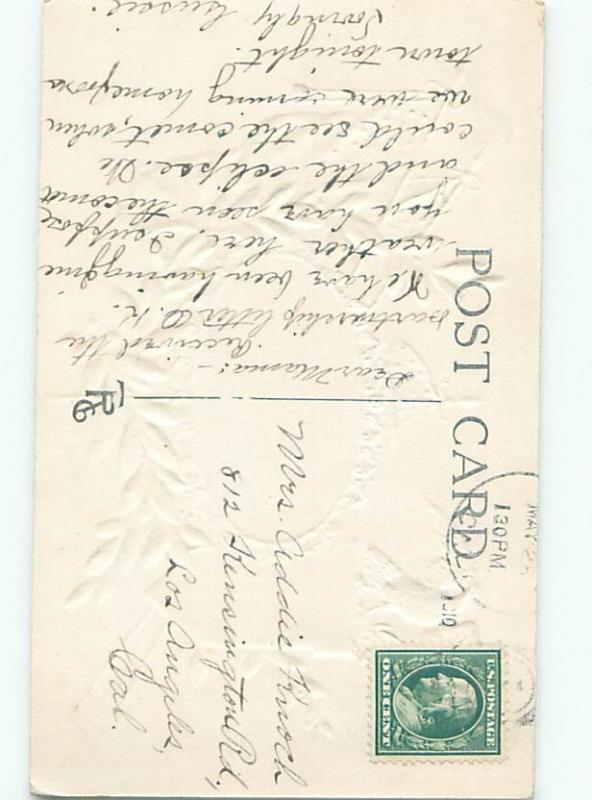 POST CARD
Dear Mama:-
Received the
partnership letter O.K.
We have been having fine
weather here. I suppose
you have seen the comet
and the eclipse. We
could see the comet, when
we were coming home from
town tonight.
Lovingly Gussie.
MAY
1 30 PM
1910
U.S. POSTAGE
ONE CENT
Mrs. Addie Knoch
812 Kensington Rd,
Los Angeles,
Cal.